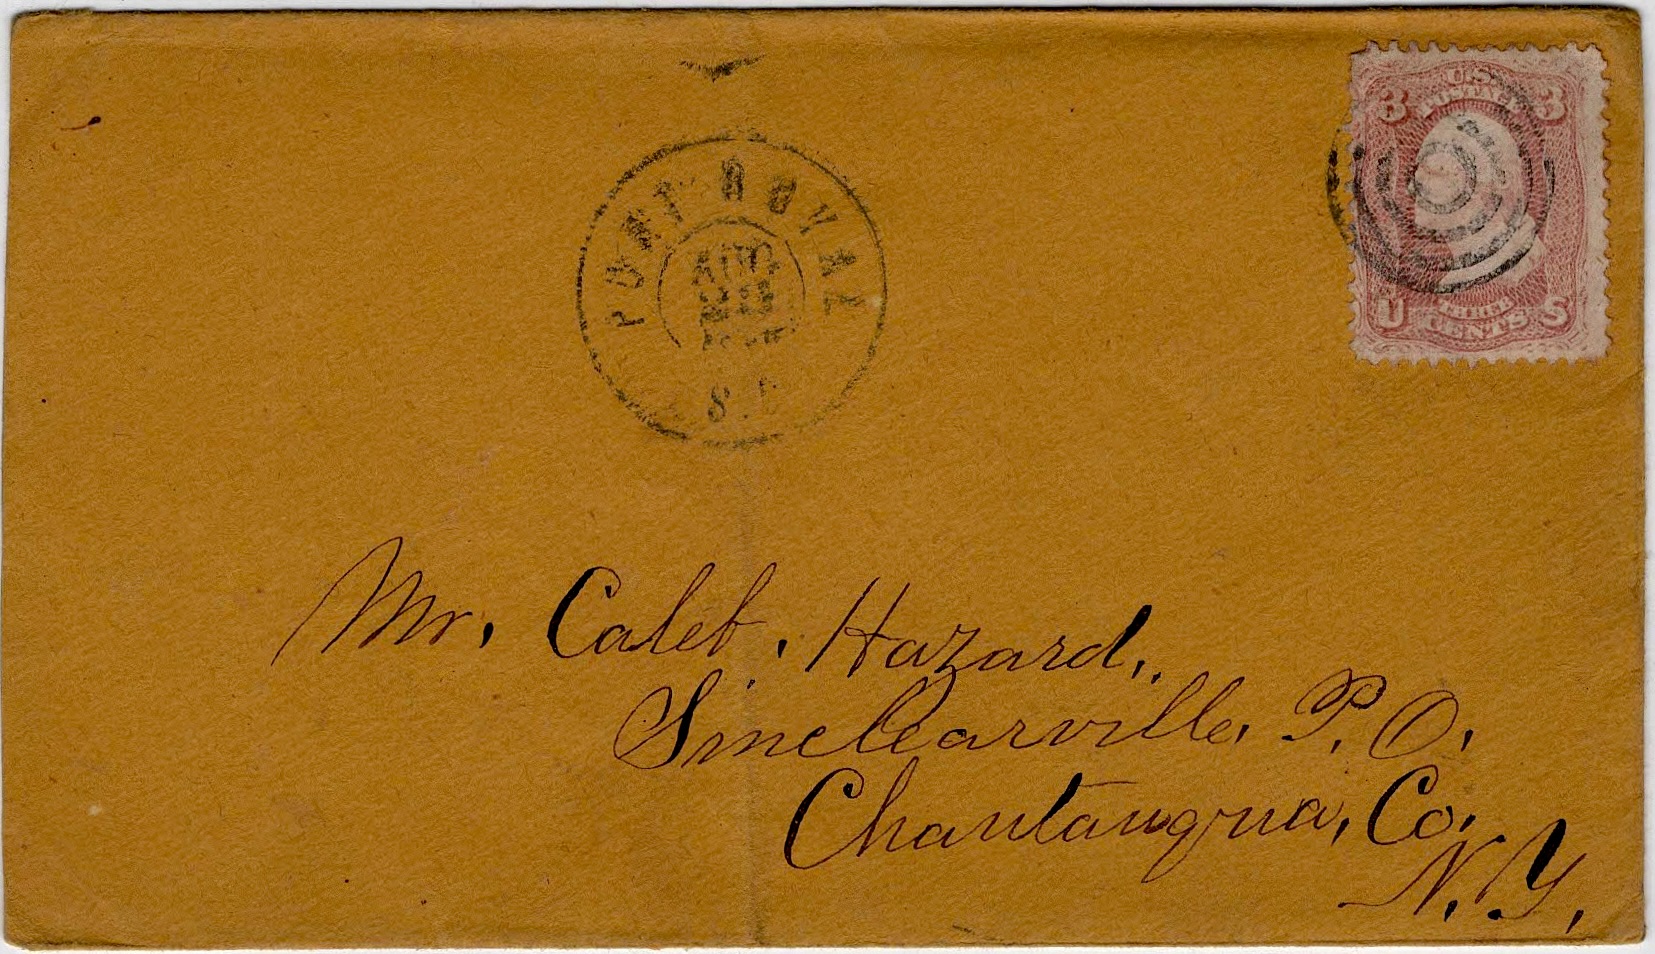 PORT ROYAL
AUG
S.C
3 U. 3
POSTAGE
THREE
U CENTS S
Mr. Caleb. Hazard.
Sinclearville. P.O.
Chautauqua, Co.
N.Y.